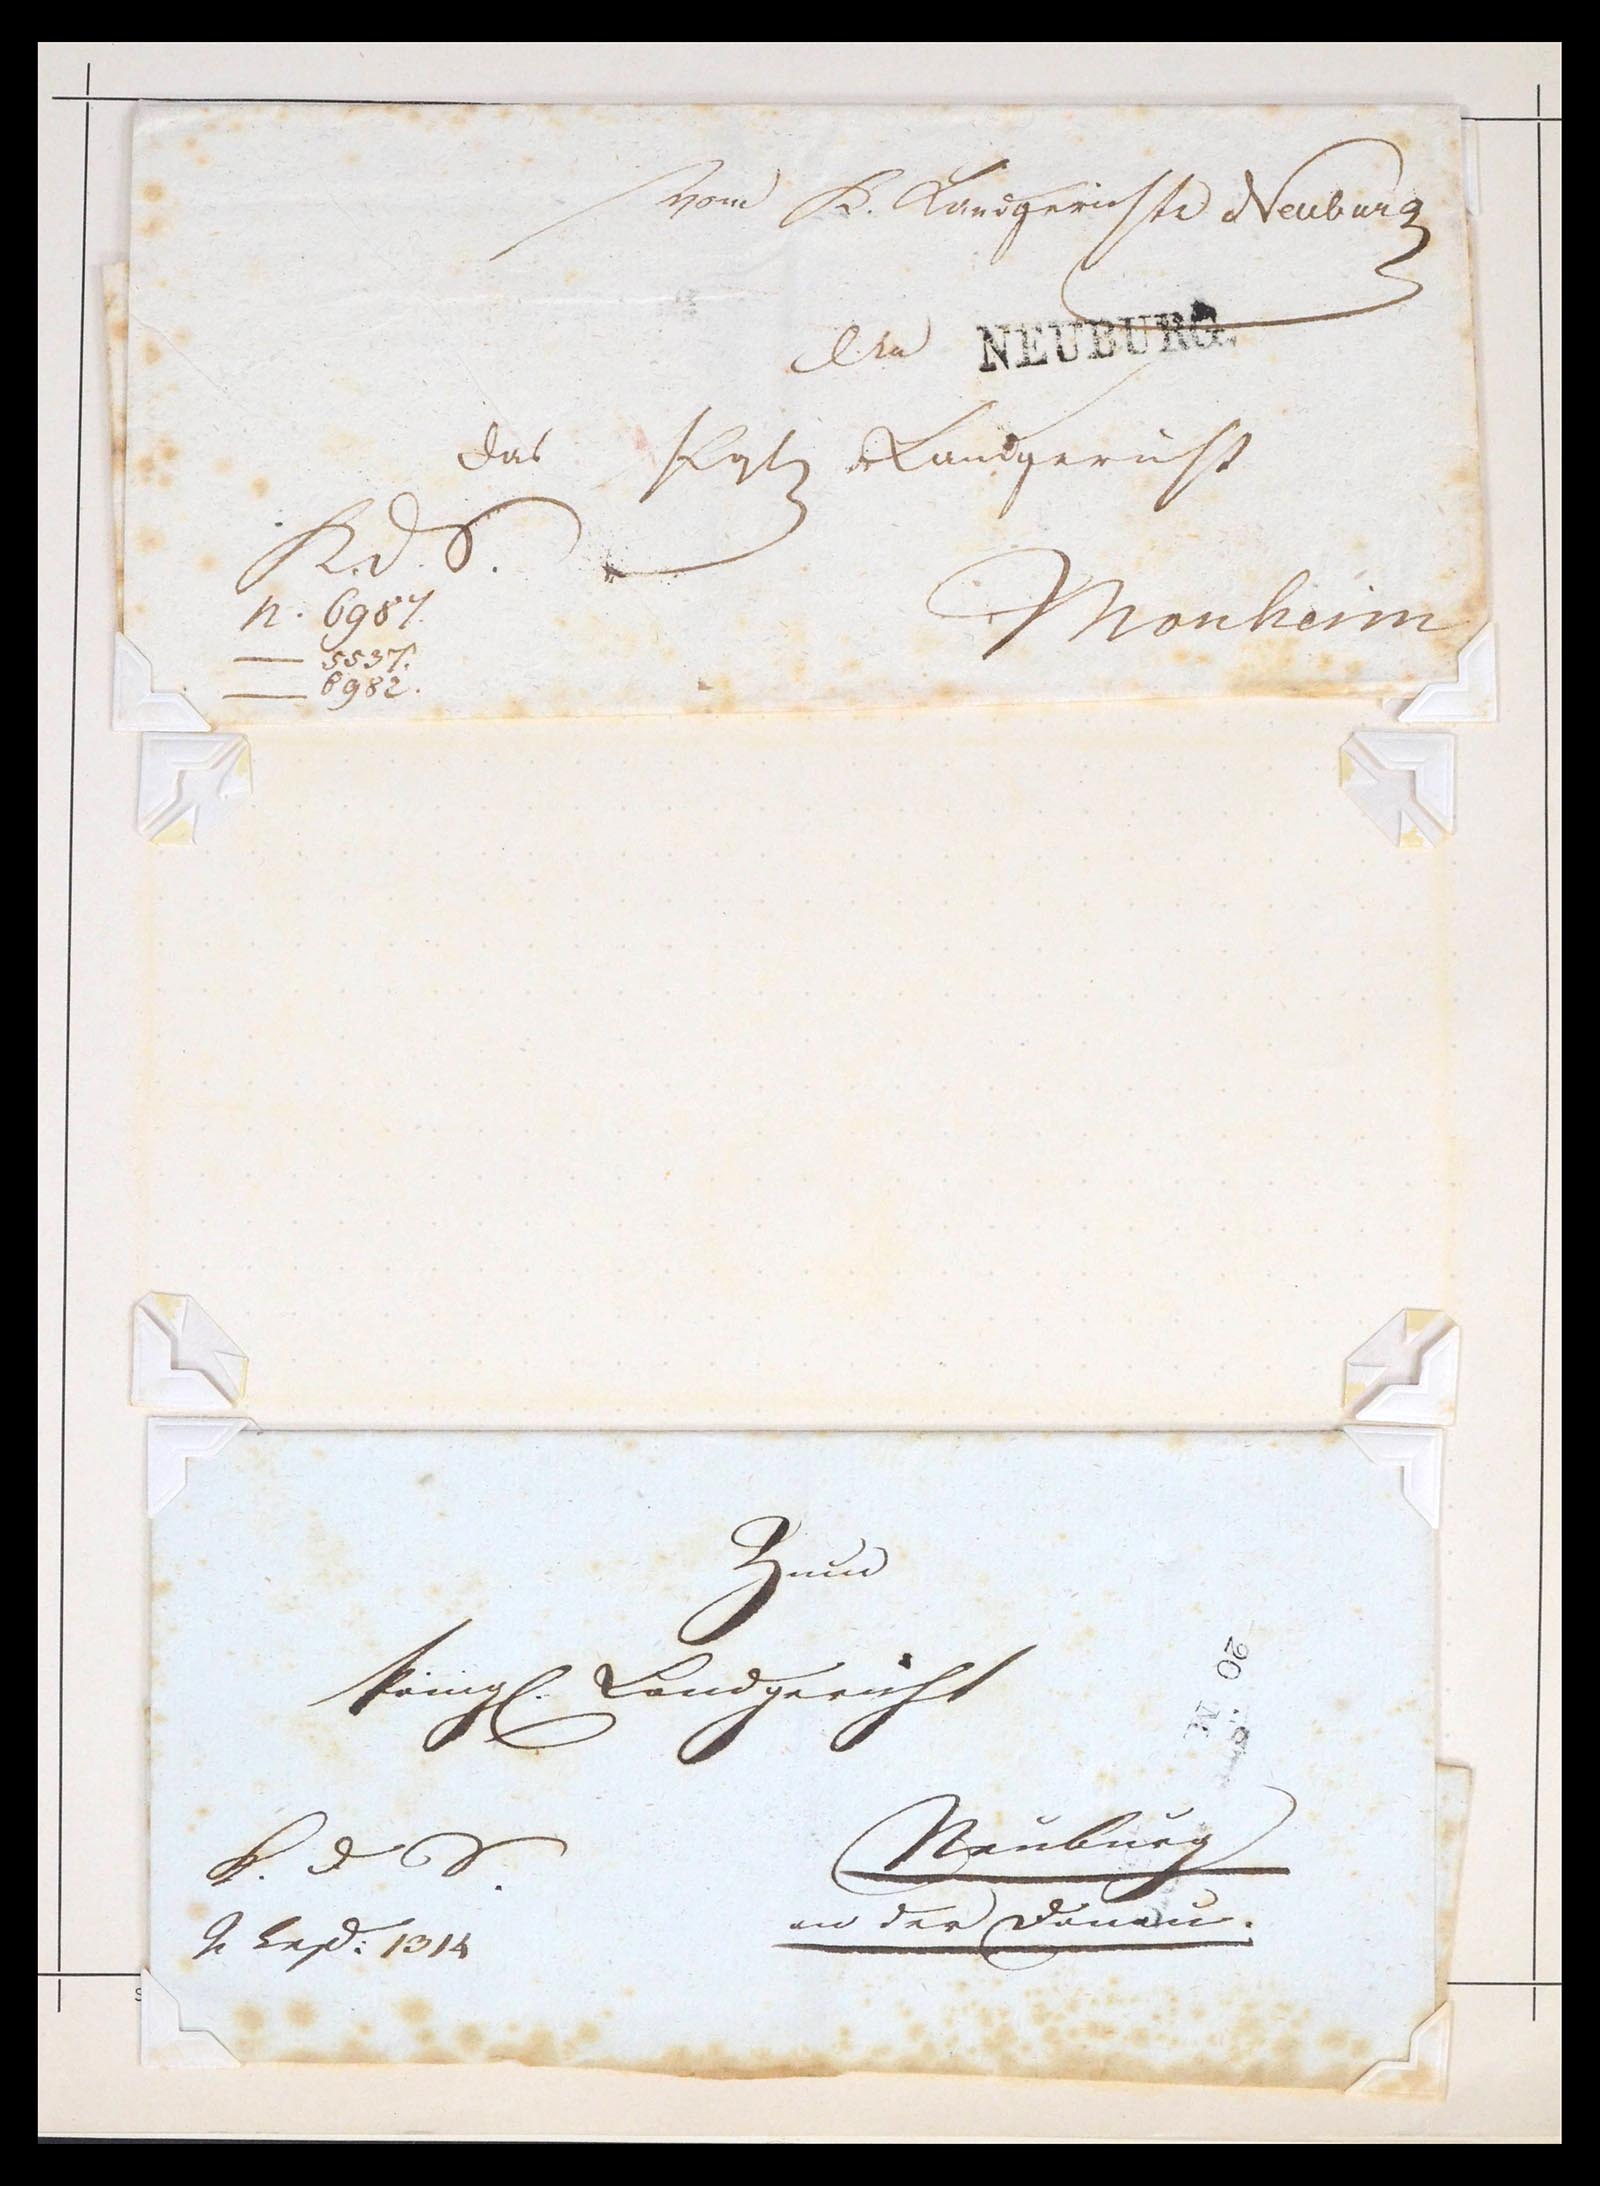 Vom K. Landgerichte Neuburg
An NEUBURG.
das Kgl. Landgericht
K.d.S.
Monheim
n. 6987.
— 5537.
— 6982.
Zum
königl. Landgericht
20
Neuburg
K. d. S.
an der Donau.
N Exped: 1314